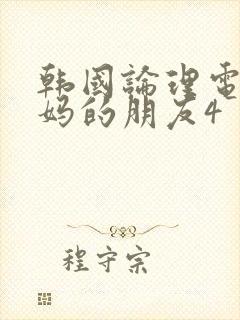 韩國論理電
妈的朋友4
程守宗